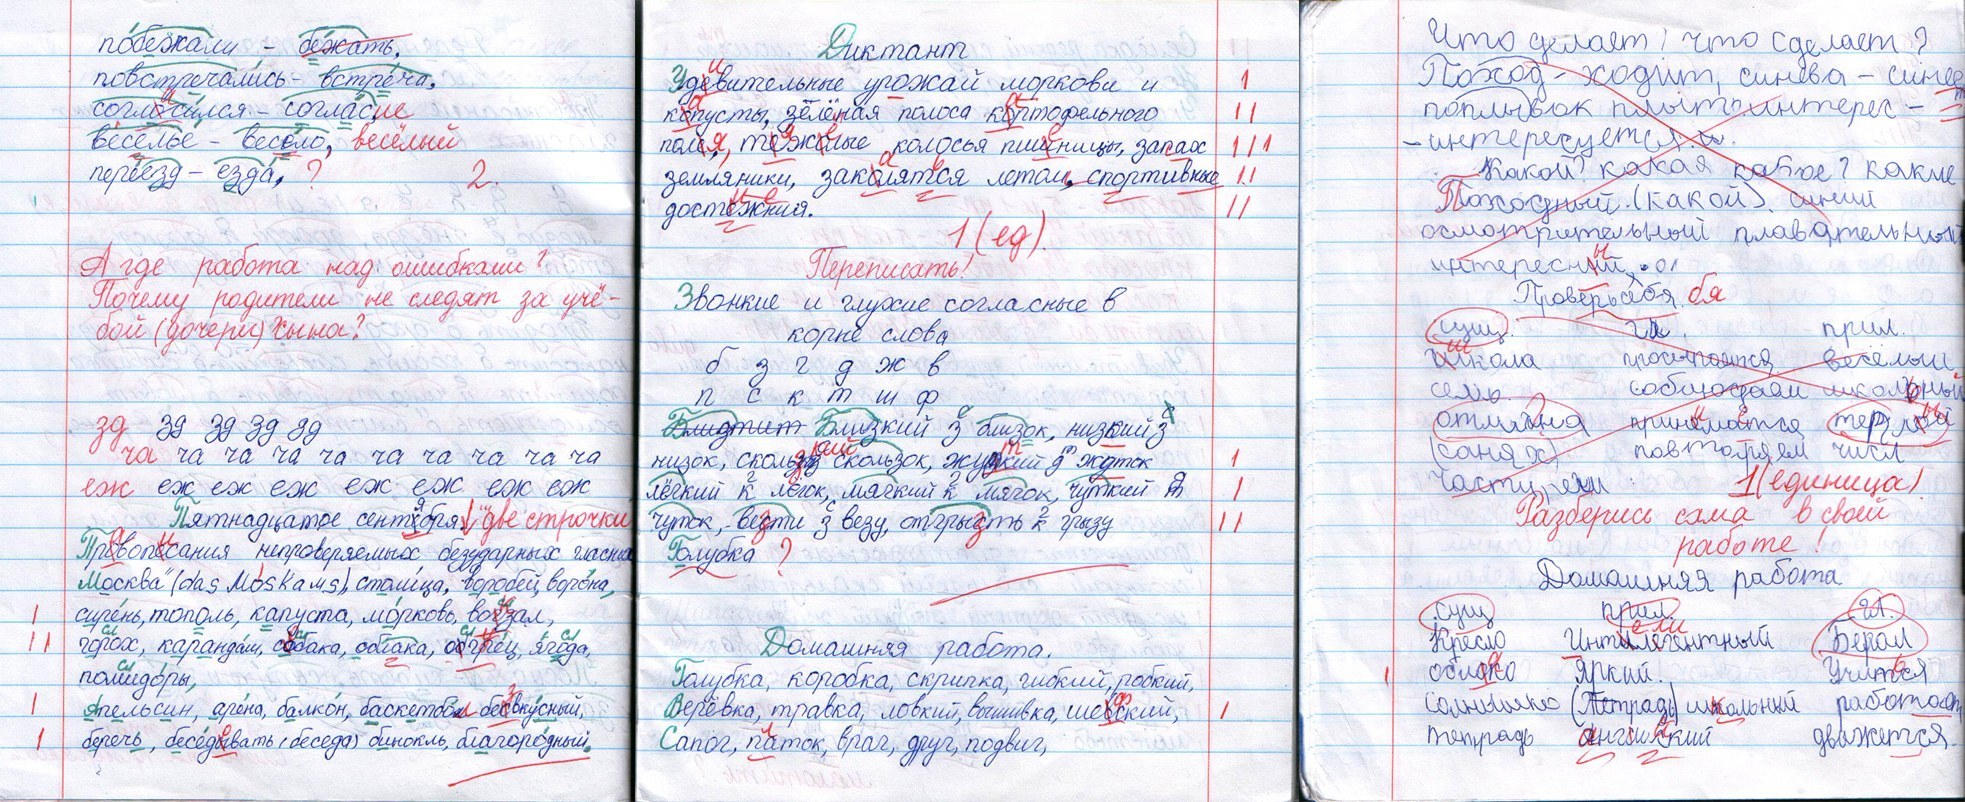 побежали - бежать,
повстречались - встреча,
согласился - согласие
веселье - весело, весёлый
переезд - езда, ? 2.
А где работа над ошибками?
Почему родители не следят за учё-
бой (дочери) сына?
зд зд зд зд зд
ча ча ча ча ча ча ча ча ча ча
еж еж еж еж еж еж еж еж
Пятнадцатое сентября две строчки
Правописания непроверяемых безударных гласных
Москва (das Moskaus), столица, воробей, ворона,
сирень, тополь, капуста, морковь, вокзал,
горох, карандаш, собака, огурец, ягода,
помидоры,
апельсин, арена, балкон, баскетбол безвкусный,
беречь, беседывать (беседа) бинокль, благородный.
Диктант
Удевительные урожай моркови и
копусты, зелёная полоса кортофельного
поля, колосья пшеницы, запах
земляники, заколятся летом, спортивные
достежния.
1 (ед).
Переписать!
Звонкие и глухие согласные в
корне слова
б з г д ж в
п с к т ш ф
Близкий з близок, низкий з
низок, скользок, жуткий д жуток
лёгкий к лёгок, мягкий к мягок, чуткий т
чуток, везти з везу, отгрысть к грызу
Голубка ?
Домашняя работа.
Голубка, коробка, скрипка, гибкий, робкий,
Верёвка, травка, ловкий, вышивка,
Сапог, паток, враг, друг, подвиг,
Что делает? что сделает?
Поход - ходит, синева - синеет
поплывок интерес -
- интересуется.
Какой? какая какое? какие
Походный (какой). синий
осмотрительный плавательный
интересний
Проверь себя. бя
сущ. гл. прил.
школа просыпаются весёлый
семь. соблюдаем школьный
отлична принемаются
(санях) повторяем числ
Части речи 1 (единица)
Разберись сама в своей
работе!
Домашняя работа
сущ прил. гл.
Кресло Интилегентный Берал
облоко яркий. Учиться
солнышко (Тетрадь) школьный работает
тетрадь английский движется.